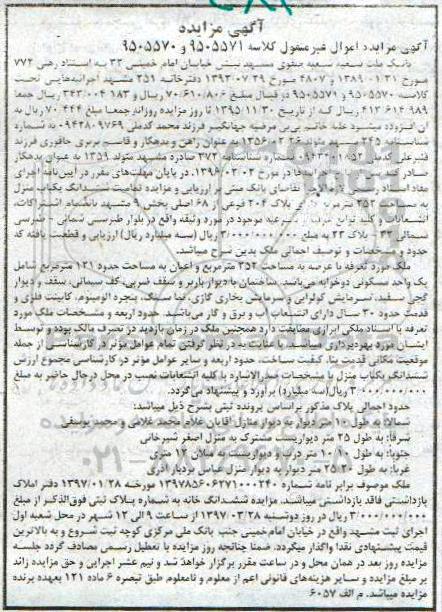 آگهی مزایده
آگهی مزایده اموال غیرمنقول کلاسه ۹۵۰۵۵۷۱ و ۹۵۰۵۵۷۰
بانک ملت شعبه شعبه صفوی مشهد نبش خیابان امام خمینی ۳۳ به استناد رهنی ۷۷۲
مورخ ۱۳۸۹/۰۱/۳۱ و ۴۸۰۷ مورخ ۱۳۹۳/۰۷/۲۹ دفترخانه ۲۵۱ مشهد اجرائیه‌هایی تحت
کلاسه ۹۵۰۵۵۷۰ و ۹۵۰۵۵۷۱ در قبال مبلغ ۷۰/۶۱۰/۸۰۶ ریال و ۳۴۳/۰۰۴/۱۸۳ ریال جمعا
۴۱۳/۶۱۴/۹۸۹ ریال که از تاریخ ۱۳۹۵/۱۱/۳۰ تا روز مزایده روزانه جمعا مبلغ ۷۰/۴۴۴ ریال به
آن افزوده میشود علیه خانم بی بی مرضیه جهانگیر فرزند محمد کدملی ۰۹۴۲۸۰۹۷۶۹ به شماره
شناسنامه مشهد متولد به عنوان راهن و بدهکار و قاسم بربری جاقوری فرزند
قنبرعلی کدملی شماره شناسنامه ۳۷۲ صادره مشهد متولد ۱۳۵۹ به عنوان بدهکار
صادر در مورخ ۱۳۹۶/۰۳/۰۲ در پایان مهلت‌های مقرر در آیین‌نامه اجرای
مفاد اسناد تقاضای بانک مبنی بر ارزیابی و مزایده تمامیت ششدانگ یکباب منزل
به مساحت ۲۵۲ مترمربع پلاک ۲۰۴ فرعی از ۶۸ اصلی بخش ۹ مشهد بانضمام اشتراکات،
انشعابات و کلیه توابع شرعیه موجود در مورد وثیقه واقع در بلوار طبرسی شمالی - طبرسی
شمالی ۳۳ - پلاک ۲۳ به مبلغ ۳/۰۰۰/۰۰۰/۰۰۰ ریال (سه میلیارد ریال) ارزیابی و قطعیت یافته که
حدود و مشخصات و توصیف اجمالی ملک بدین شرح میباشد.
ملک مورد تعرفه با عرصه به مساحت ۲۵۲ مترمربع و اعیان به مساحت حدود ۱۲۱ مترمربع شامل
یک واحد مسکونی دوخوابه می‌باشد. ساختمان با دیوار باربر و سقف ضربی، کف سیمانی، سقف و دیوار
گچی سفید، سرمایش کولرآبی و گرمایش بخاری گازی، نما سنگ، پنجره آلومینیوم، کابینت فلزی و
قدمت حدود ۳۰ سال دارای انشعابات آب و برق و گاز می‌باشد. حدود اربعه و مشخصات ملک مورد
تعرفه با اسناد ملکی ابرازی مطابقت دارد همچنین ملک در زمان بازدید در تصرف مالک بوده و توسط
ایشان مورد بهره‌برداری میباشد. با عنایت به در نظر گرفتن تمام عوامل موثر در کارشناسی از جمله
موقعیت مکانی، قدمت بنا، کیفیت ساخت، حدود اربعه و سایر عوامل موثر در کارشناسی مجموع ارزش
ششدانگ یکباب منزل با مشخصات صدرالاشاره با کلیه انشعابات نصب در محل درحال حاضر به مبلغ
۳/۰۰۰/۰۰۰/۰۰۰ ریال(سه میلیارد) برآورد و پیشنهاد می‌گردد.
حدود اجمالی پلاک مذکور براساس پرونده ثبتی بشرح ذیل میباشد:
شمالا: به طول ۱۰ متر دیوار به دیوار منازل آقایان غلام محمد غلامی و محمد یوسفی
شرقا: به طول ۲۵ متر دیواریست مشترک به منزل اصغر شیرخانی
جنوبا: به طول ۱۰/۱۰ متر درب و دیواریست به میلان ۱۲ متری
غربا: به طول ۲۵/۲۰ متر دیوار به دیوار منزل عباس بردبار آذری
ملک موصوف برابر نامه شماره ۱۳۹۷۸۵۶۰۶۲۷۱۰۰۰۲۴۰ مورخه ۱۳۹۷/۰۱/۲۸ دفتر املاک
بازداشتی فاقد بازداشتی میباشد. مزایده ششدانگ خانه به شماره پلاک ثبتی فوق‌الذکر از مبلغ
۳/۰۰۰/۰۰۰/۰۰۰ ریال در روز دوشنبه ۱۳۹۷/۰۳/۲۸ از ساعت ۹ الی ۱۲ ظهر در محل شعبه اول
اجرای ثبت مشهد واقع در خیابان امام‌خمینی جنب بانک ملی مرکزی کوچه ثبت شروع و به بالاترین
قیمت پیشنهادی نقدا واگذار میگردد. ضمنا چنانچه روز مزایده با تعطیل رسمی مصادف گردد جلسه
مزایده روز بعد در همان محل و در ساعت مقرر برگزار خواهد شد و نیم عشر اجرایی و حق مزایده زائد
بر مبلغ مزایده و سایر هزینه‌های قانونی اعم از معلوم و نامعلوم طبق تبصره ۶ ماده ۱۲۱ بعهده برنده
مزایده میباشد. م الف ۶۰۵۷